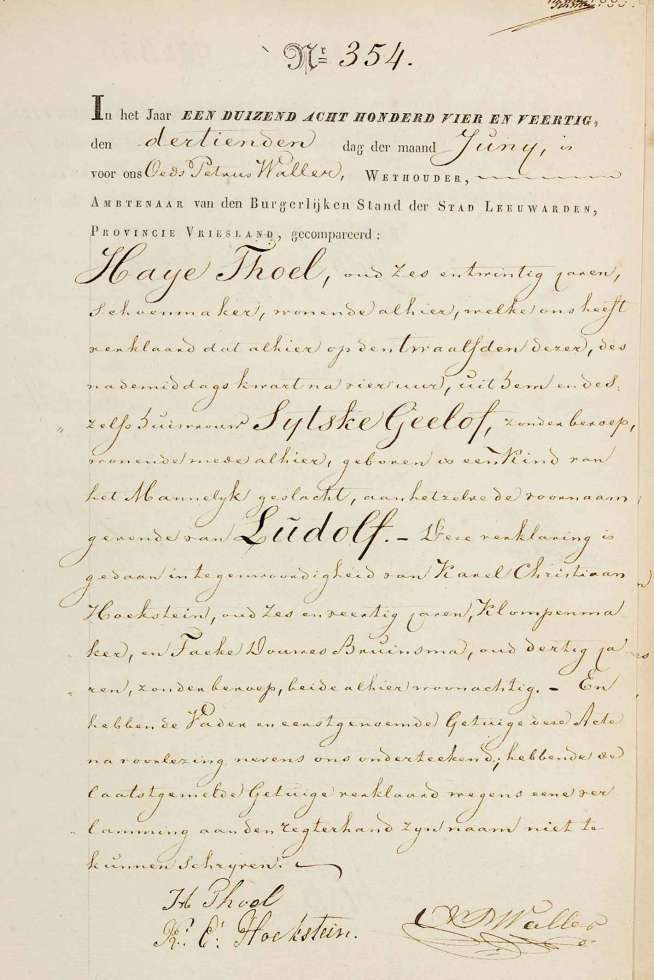 Nr 354.
In het Jaar EEN DUIZEND ACHT HONDERD VIER EN VEERTIG,
den dertienden dag der maand Juny, is
voor ons Oeds Petrus Waller, WETHOUDER,
AMBTENAAR van den Burgerlijken Stand der STAD LEEUWARDEN,
PROVINCIE VRIESLAND, gecompareerd:
Haye Thoel, oud zes en twintig jaren,
schoenmaker, wonende alhier, welke ons heeft
verklaard dat alhier op den twaalfden dezer, des
nademiddags kwart na vier uur, uit hem en des-
zelfs huisvrouw Sytske Geelof, zonder beroep,
wonende mede alhier, geboren is een Kind van
het Mannelyk geslacht, aan hetzelve de voornaam
gevende van Ludolf. - Deze verklaring is
gedaan in tegenwoordigheid van Karel Christiaan
Hoekstein, oud zes en veertig jaren, Klompenma
ker, en Taeke Douwes Bruinsma, oud dertig ja
ren, zonder beroep, beide alhier woonachtig. - En
hebben de Vader en eerstgenoemde Getuige deze Acte
na voorlezing nevens ons onderteekend; hebbende de
laatstgemelde Getuige verklaard wegens eene ver
lamming aan den regterhand zyn naam niet te
kunnen schryven.
H Thoel
K. C. Hoekstein.
O P Waller